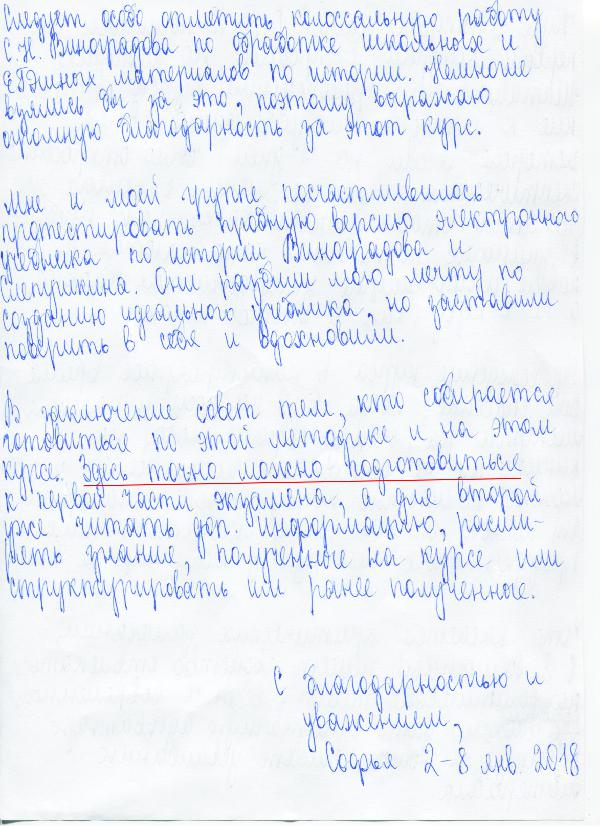 Следует особо отметить колоссальную работу
С.Н. Виноградова по обработке школьных и
ЕГЭшных материалов по истории. Немногие
взялись бы за это, поэтому выражаю
огромную благодарность за этот курс.
Мне и моей группе посчастливилось
протестировать пробную версию электронного
учебника по истории Виноградова и
Слепушкина. Они разбили мою мечту по
созданию идеального учебника, но заставили
поверить в себя и вдохновили.
В заключение совет тем, кто собирается
готовиться по этой методике и на этом
курсе. Здесь точно можно подготовиться
к первой части экзамена, а для второй
уже читать доп. информацию, расши-
рять знания, полученные на курсе или
структурировать им ранее полученные.
С благодарностью и
уважением,
2-8 янв. 2018